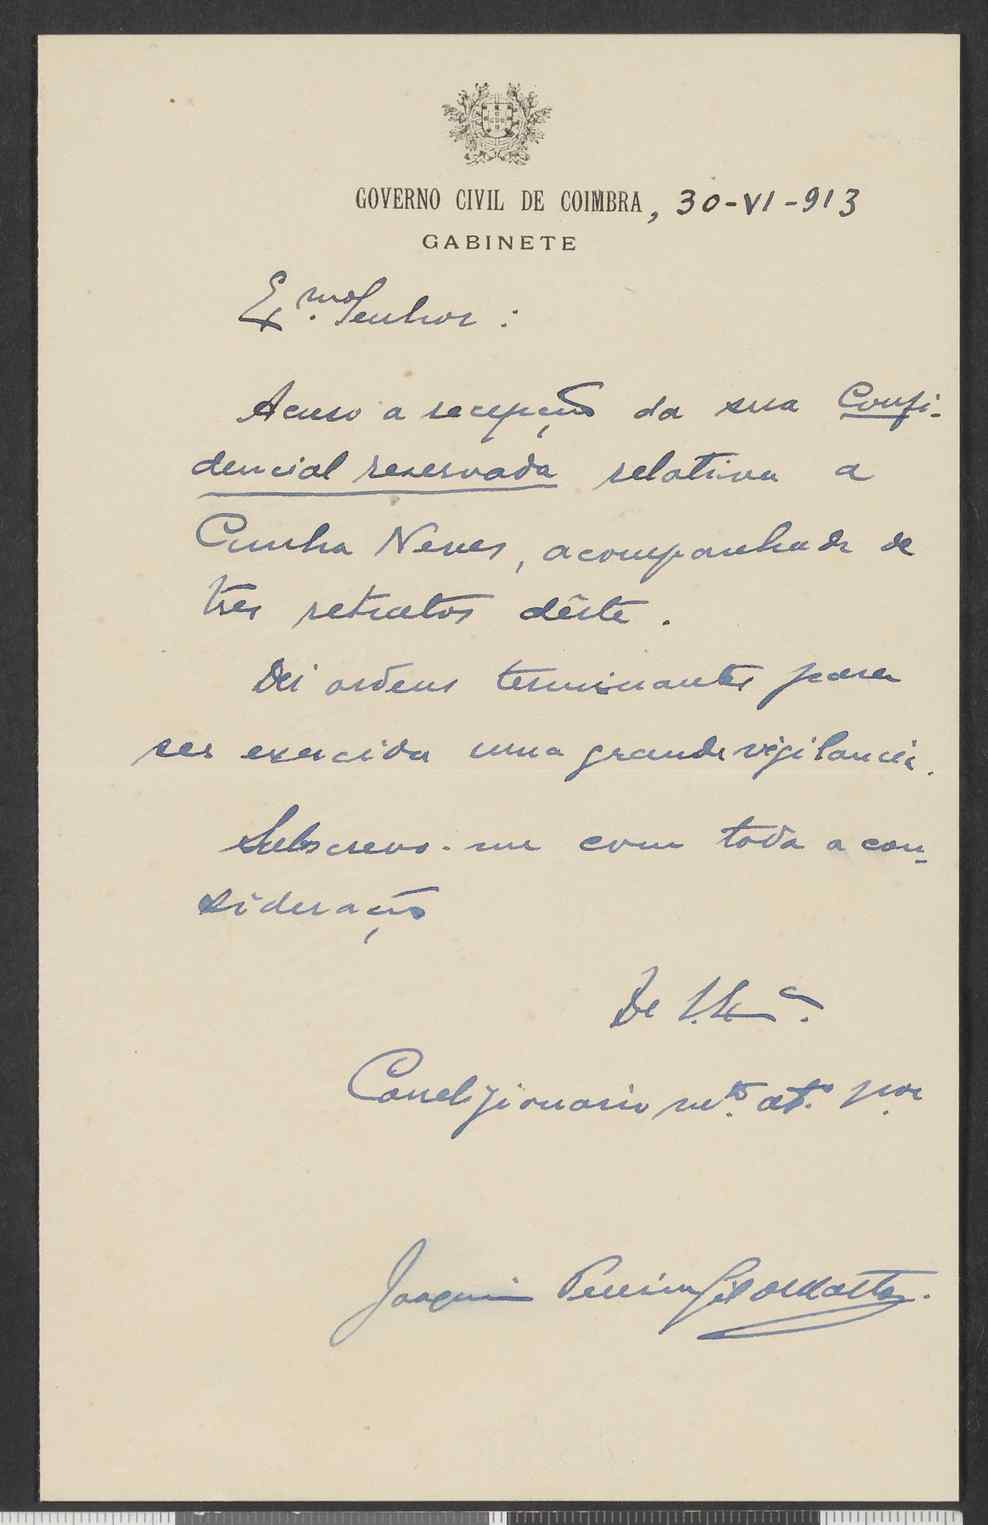 GOVERNO CIVIL DE COIMBRA, 30-VI-913
GABINETE
Ex.mo Senhor:
Acuso a recepção da sua Confi-
dencial reservada relativa a
Cunha Neves, acompanhada de
tres retratos dêste.
Dei ordens terminantes para
ser exercida uma grande vigilancia.
Subscrevo-me com toda a con-
sideração
De V. Ex.ª
Correligionario m.to at.o por
Joaquim Pereira Gil de Mattos.